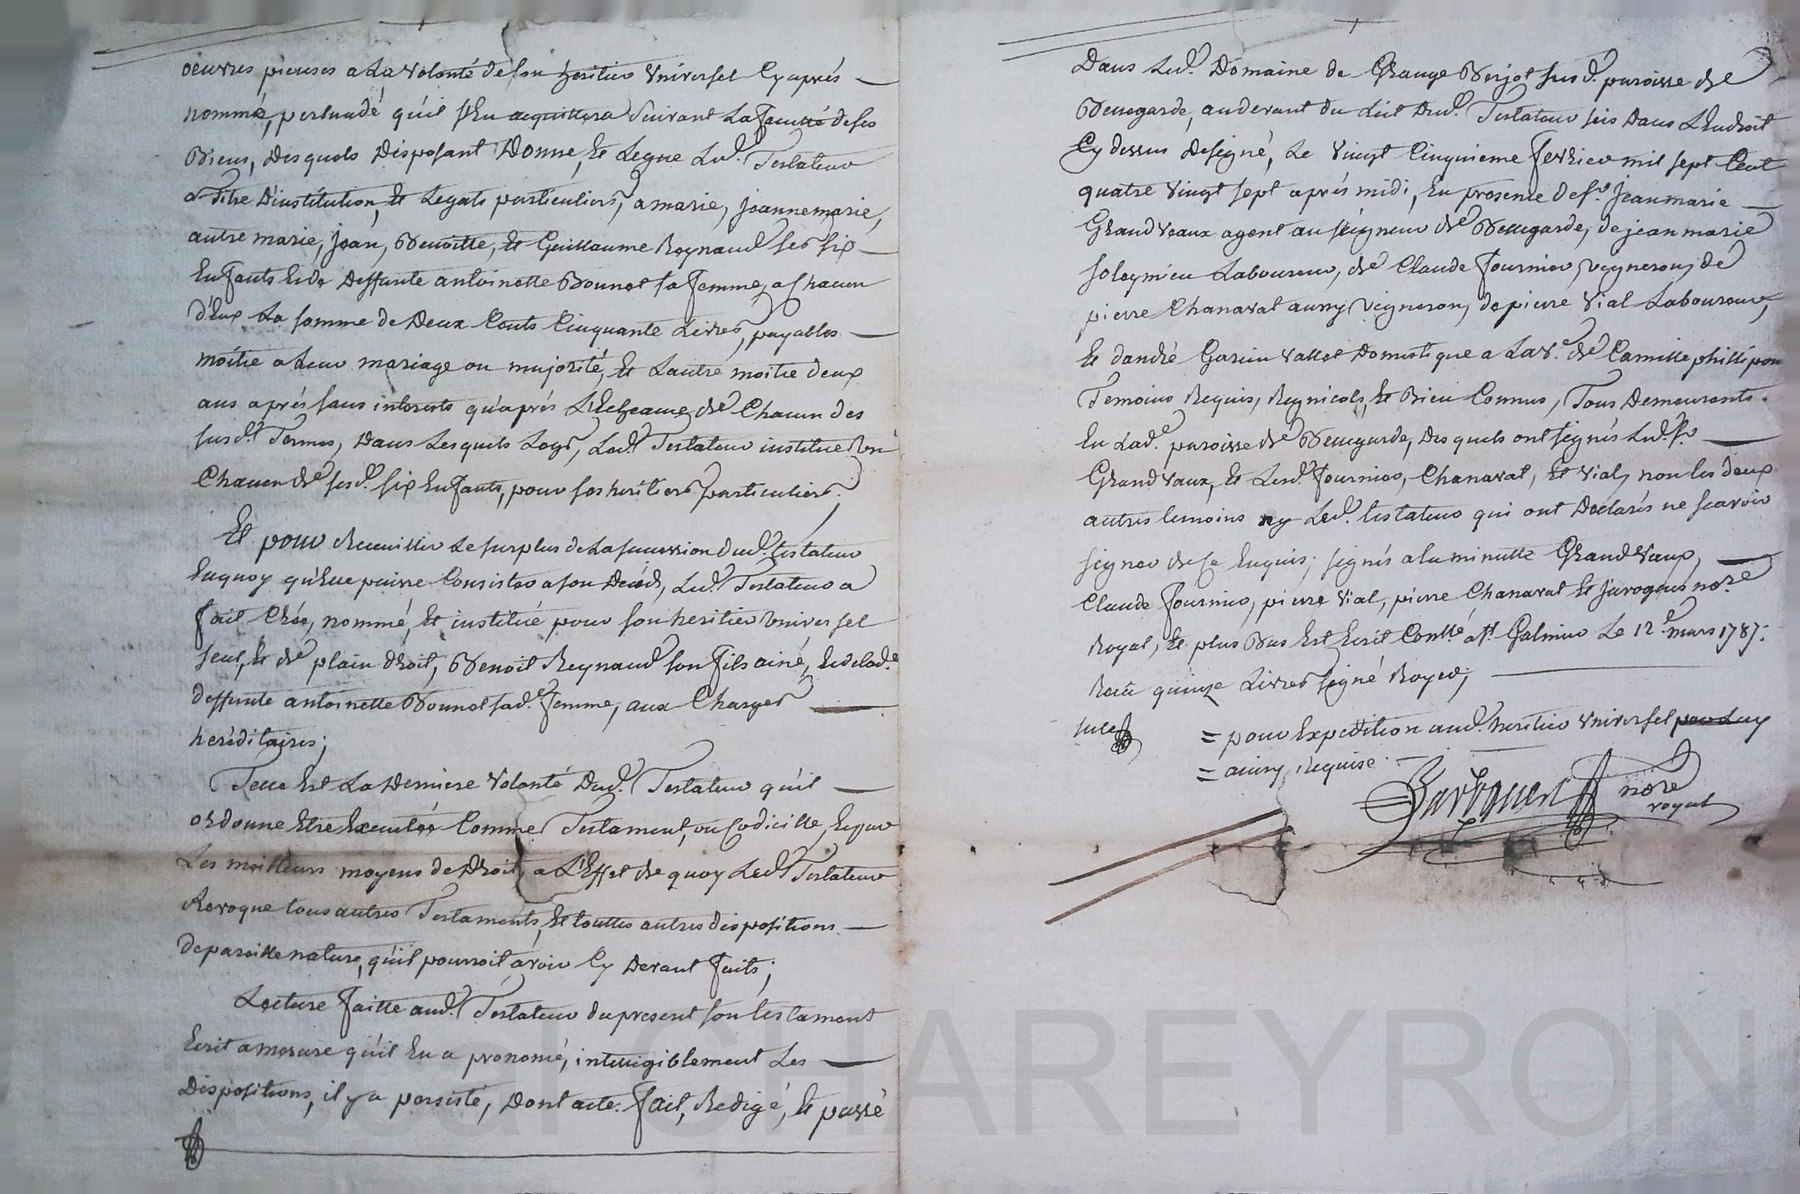 oeuvres pieuses a La Volonté de son heritier Universel Cy aprés
nommé, persuadé qu'il s'En acquittera Suivant La faculté de ses
Biens, Desquels Disposant Donne, Et Legue Lud.t Testateur
a Titre D'institution, Et Legats particuliers, a marie, jeanne marie,
autre marie, jean, Benoitte, Et Guillaume Reynaud ses six
Enfants Et de Deffunte antoinette Bonnet sa femme, a Chacun
d'Eux La somme de Deux Cents Cinquante Livres, payables
moitie a Leur mariage ou majorité, Et L'autre moitie deux
ans aprés sans interests qu'aprés L'Echeance de Chacun des
susd.ts Termes, Dans Lesquels Legs, Led.t Testateur institue Un
Chacun de sesd.ts six Enfants, pour ses heritiers particuliers;
Et pour Recueillir Le surplus de La succession dud.t testateur
En quoy qu'Elle puisse Consister a son Décéd, Led.t Testateur a
fait Créé, nommé, Et institué pour son heritier universel
seul, Et de plain droit, Benoit Reynaud son fils ainé, Et de lad.e
deffunte antoinette Bonnet sad.e femme, aux Charges
heréditaires;
Telle Est La Derniere Volonté Dud.t Testateur qu'il
ordonne Etre Executée Comme Testament, ou Codicille, Et par
Les meilleurs moyens de Droit, a L'Effet de quoy Led.t Testateur
Revoque tous autres Testaments, Et touttes autres dispositions
de pareille nature, qu'il pourroit avoir Cy Devant faits;
Lecture faitte aud.t Testateur du present son testament
Ecrit a mesure qu'il En a prononcé, intelligiblement Les
Dispositions, il y a persisté, Dont acte. fait, Redigé, Et passé
Dans Led.t Domaine de Grange Berjot susd.e paroisse de
Bellegarde, au devant du Lit Dud.t Testateur sis Dans L'Endroit
Cy dessus designé, Le Vingt Cinquieme fevrier mil sept Cent
quatre Vingt sept aprés midi, En presence de s.r Jean marie
Grand Vaux agent au seigneur de Bellegarde, de jean marie
soleymieu Laboureur, de Claude fournier, vigneron, de
pierre Chanavat aussy Vigneron, de pierre Vial Laboureur,
Et d'andré Garin Vallet Domestique a La V.e de Camille phillipon
Temoins Requis, Regnicols, Et Bien Connus, Tous Demeurants
En Lad.e paroisse de Bellegarde, Desquels ont signés Led.t s.r
Grand Vaux, Et Lesd.ts fournier, Chanavat, Et Vial, non les deux
autres temoins ny Led.t testateur qui ont Declarés ne scavoir
signer de ce Enquis; signés a la minutte Grand Vaux,
Claude fournier, pierre Vial, pierre Chanavat Et jurogues no.re
Royal, Et plus Bas Est Ecrit Con.llé a S.t Galmier Le 12.e mars 1787:
Recu quinze Livres signé Royer;
= pour Expedition aud.t heritier Universel par Luy
= ainsy Requise.
no.re
royal
Pascal CHAREYRON